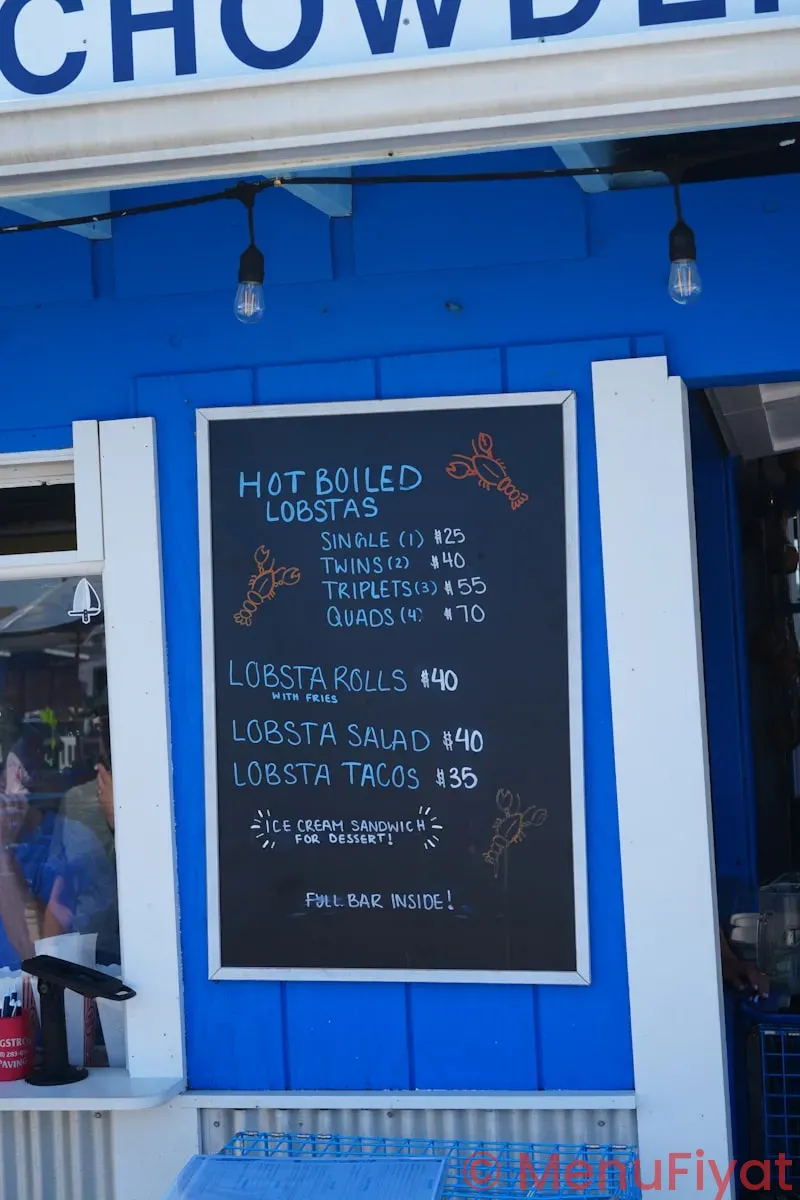 CHOWDE
HOT BOILED
LOBSTAS
SINGLE (1) $25
TWINS (2) $40
TRIPLETS (3) $55
QUADS (4) $70
LOBSTA ROLLS $40
WITH FRIES
LOBSTA SALAD $40
LOBSTA TACOS $35
ICE CREAM SANDWICH
FOR DESSERT!
FULL BAR INSIDE!
PAVING
© MenuFiyat